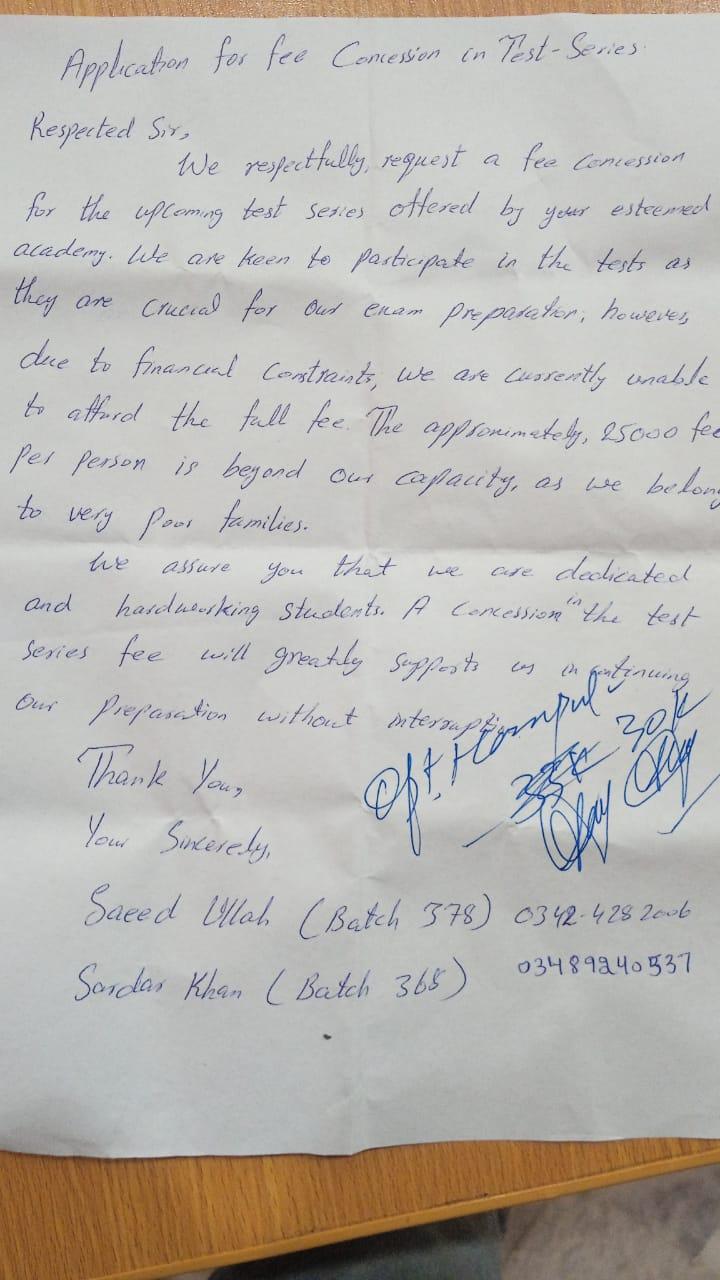 Application for fee Concession in Test-Series.
Respected Sir,
We respectfully, request a fee concession
for the upcoming test series offered by your esteemed
academy. We are keen to participate in the tests as
they are crucial for our exam preparation; however,
due to financial constraints, we are currently unable
to afford the full fee. The approximately, 25000 fee
Per person is beyond our capacity, as we belong
to very poor families.
We assure you that we are dedicated
and hardworking students. A Concession in the test
series fee will greatly supports us in continuing
our preparation without interruption.
30k
Thank You,
Your Sincerely,
Saeed Ullah (Batch 378) 0342-4282006
Sardar Khan (Batch 368) 03489240537